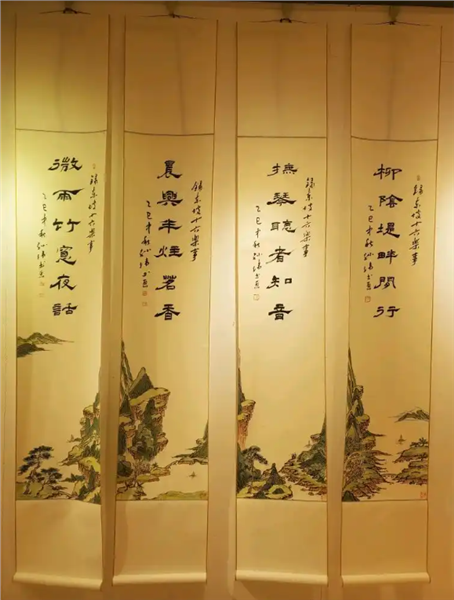 錄东坡十六樂事
柳陰堤畔閒行
乙巳年秋
錄东坡十六樂事
撫琴聽者知音
乙巳年秋
錄东坡十六樂事
晨興半炷茗香
乙巳年秋
錄东坡十六樂事
微雨竹窗夜話
乙巳年秋